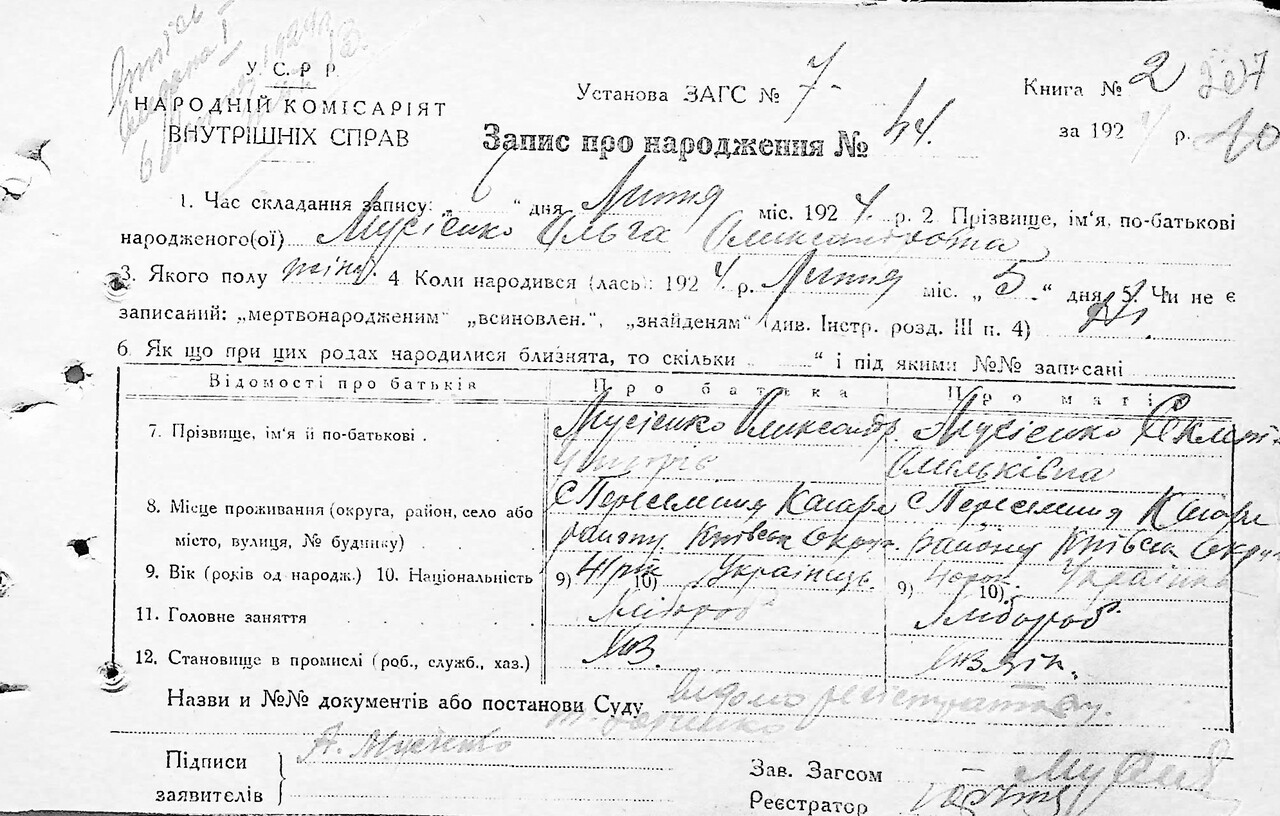 У. С. Р. Р.
НАРОДНІЙ КОМІСАРІЯТ
ВНУТРІШНІХ СПРАВ
Установа ЗАГС № 7
Книга № 2 207
за 1924 р. 10
Запис про народження № 44.
1. Час складання запису: „ " дня Липня міс. 1924. р. 2 Прізвище, ім'я, по-батькові
народженого(ої) Мусієнко Ольга Олександровна
3. Якого полу жіно. 4 Коли народився (лась): 1924 р. Липня міс. „5." дня. 5. Чи не є
записаний: „мертвонародженим" „всиновлен.", „знайденям" (див. Інстр. розд. III п. 4) Ні.
6. Як що при цих родах народилися близнята, то скільки " і під якими №№ записані
Відомості про батьків Про батька Про матір
7. Прізвище, ім'я й по-батькові Мусієнко Олександр. Мусієнко
Омельківна
8. Місце проживання (округа, район, село або с Переселення Кагарл с Переселення Кагарл
місто, вулиця, № будинку) району Київськ Округ. району Київськ Округ
9. Вік (років од народж.) 10. Національність 9) 41 рік 10) Українець 9) 10) Українка
11. Головне заняття Хлібороб Хлібороб
12. Становище в промислі (роб., служб., хаз.) Хаз.
Назви и №№ документів або постанови Суду відомо реєстратору.
Підписи
заявителів
А. Мусієнко
Зав. Загсом
Реєстратор